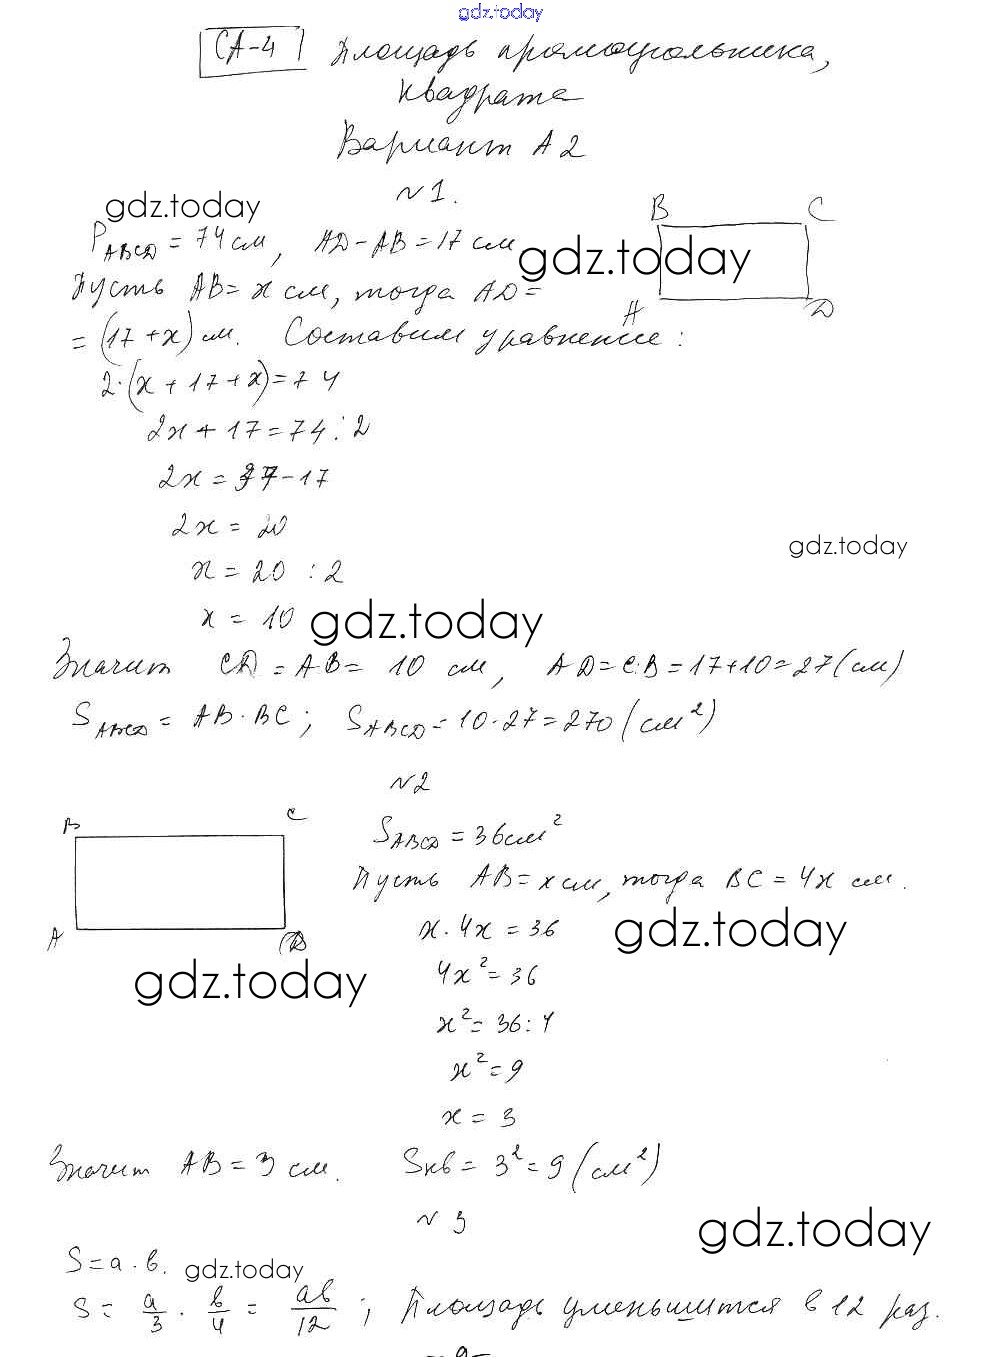 gdz.today
СА-4 Площадь прямоугольника,
квадрата
Вариант А2
№1.
gdz.today
B C
P_ABCD = 74 см, AD-AB=17 см
gdz.today
Пусть AB= x см, тогда AD=
A D
= (17+x) см. Составим уравнение:
2·(x+17+x)=74
2x+17=74:2
2x=37-17
2x=20
gdz.today
x=20:2
x=10
gdz.today
Значит CD=AB=10 см, AD=CB=17+10=27(см)
S_ABCD = AB·BC; S_ABCD=10·27=270(см²)
№2
B C
S_ABCD=36см²
Пусть AB=x см, тогда BC=4x см.
A D
x·4x=36
gdz.today
gdz.today
4x²=36
x²=36:4
x²=9
x=3
Значит AB=3 см. Sкв=3²=9(см²)
№3
gdz.today
S=a·b.
gdz.today
S= a/3 · b/4 = ab/12; Площадь уменьшится в 12 раз.